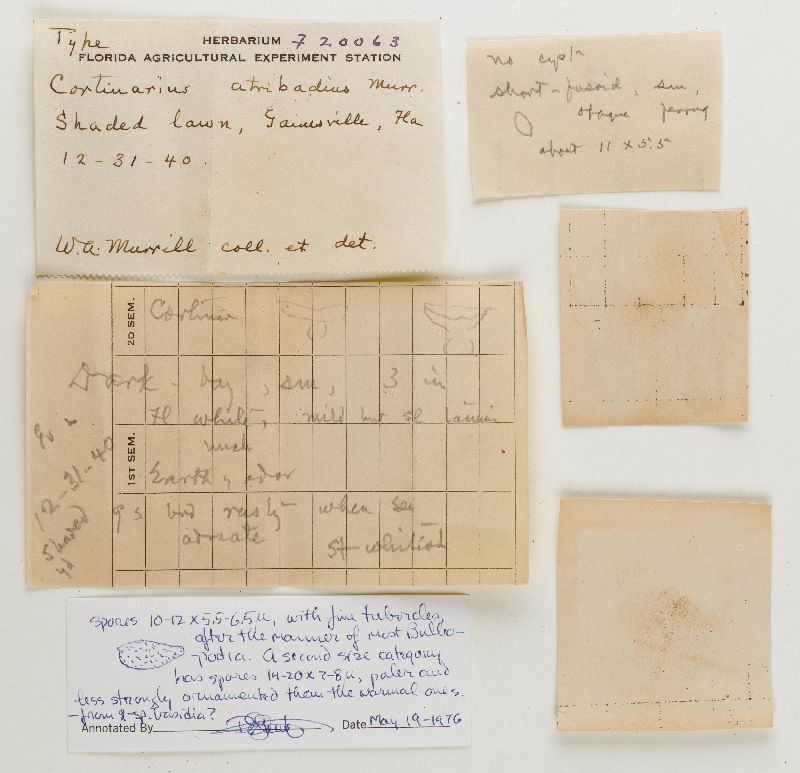 Type
HERBARIUM 720063
FLORIDA AGRICULTURAL EXPERIMENT STATION
Cortinarius atribadius Murr.
Shaded lawn, Gainesville, Fla
12-31-40.
W.A. Murrill coll. et det.
no cyst
short-fusoid, sm,
opaque ferrug
about 11 x 5.5
2D SEM.
Cortinar
Dark-bay, sm, 3 in
Fl white, mild but sl
much
1ST SEM.
Earthy odor
gs brd rusty when sen
adnate
st whitish
12-31-40
Shaded
yd
spores 10-12 x 5.5-6.5µ, with fine tubercles,
after the manner of most Bulbo-
podia. A second size category
has spores 14-20 x 7-8µ, paler and
less strongly ornamented than the normal ones.
-from 2-sp. basidia?
Annotated By
Date May 19-1976